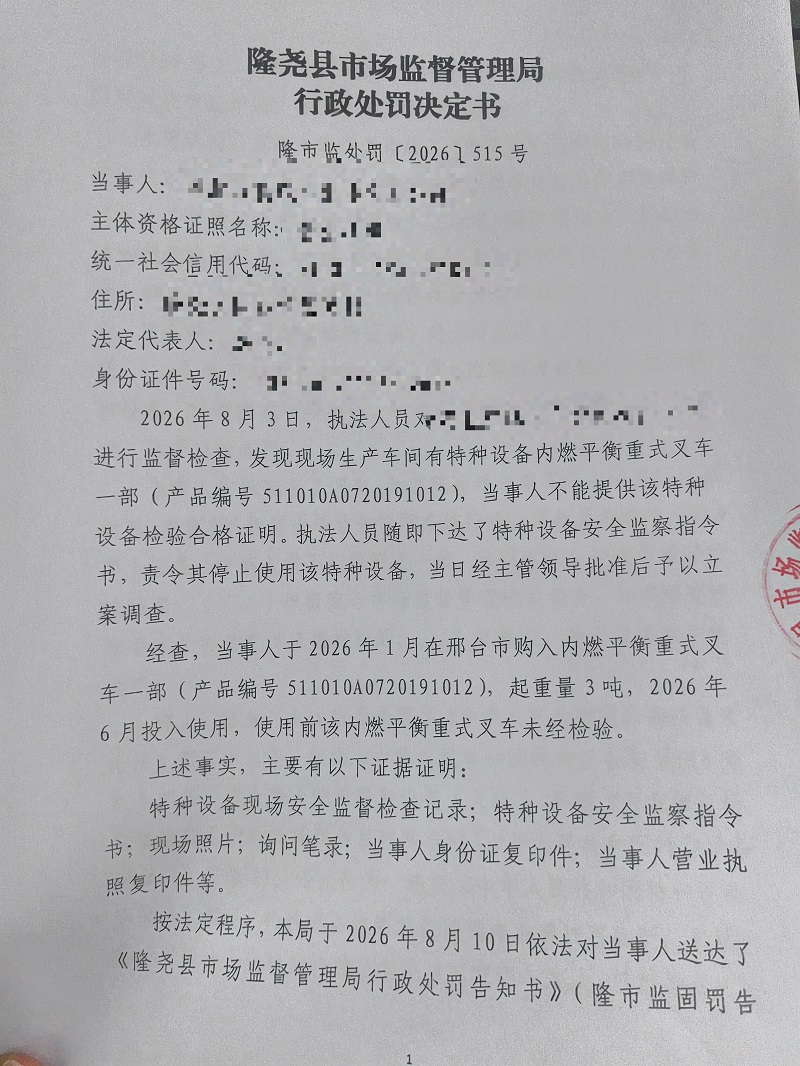 隆尧县市场监督管理局
行政处罚决定书
隆市监处罚〔2026〕515号
当事人：
主体资格证照名称：
统一社会信用代码：
住所：
法定代表人：
身份证件号码：
2026年8月3日，执法人员对
进行监督检查，发现现场生产车间有特种设备内燃平衡重式叉车
一部（产品编号511010A0720191012），当事人不能提供该特种
设备检验合格证明。执法人员随即下达了特种设备安全监察指令
书，责令其停止使用该特种设备，当日经主管领导批准后予以立
案调查。
经查，当事人于2026年1月在邢台市购入内燃平衡重式叉
车一部（产品编号511010A0720191012），起重量3吨，2026年
6月投入使用，使用前该内燃平衡重式叉车未经检验。
上述事实，主要有以下证据证明：
特种设备现场安全监督检查记录；特种设备安全监察指令
书；现场照片；询问笔录；当事人身份证复印件；当事人营业执
照复印件等。
按法定程序，本局于2026年8月10日依法对当事人送达了
《隆尧县市场监督管理局行政处罚告知书》（隆市监固罚告
市场监
1